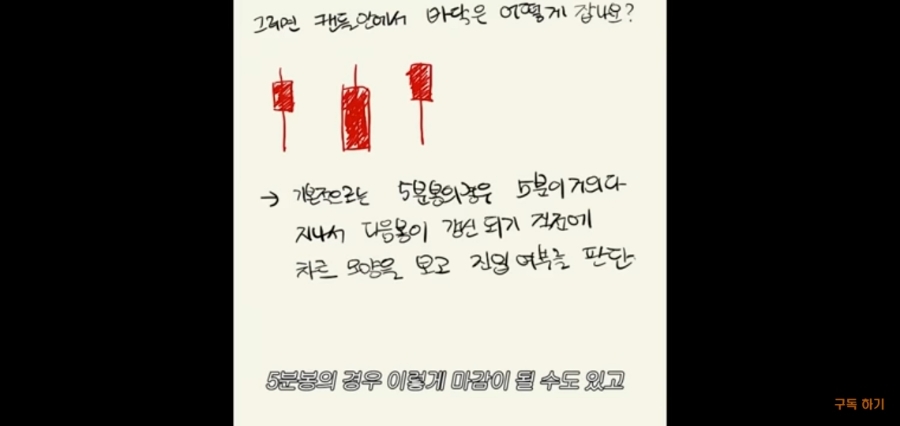 그러면 캔들안에서 바닥은 어떻게 잡나요?
→ 기본적으로는 5분봉의경우 5분이거의다
지나서 다음봉이 갱신 되기 직전에
차트 모양을 보고 진입 여부를 판단
5분봉의 경우 이렇게 마감이 될 수도 있고
구독 하기